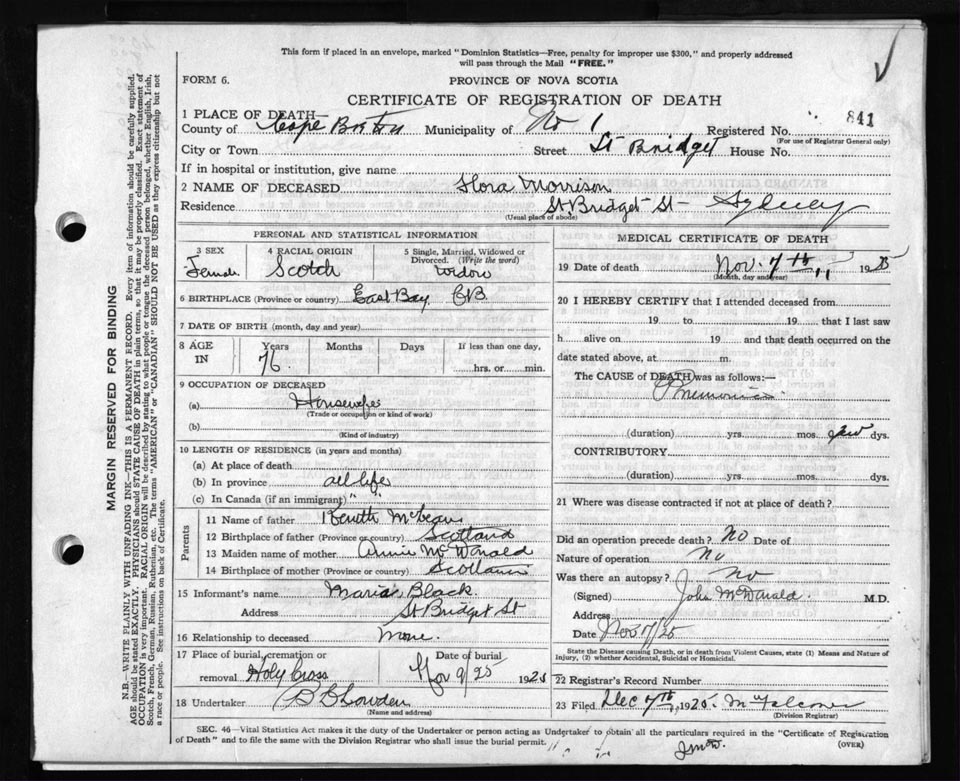 This form if placed in an envelope, marked "Dominion Statistics—Free, penalty for improper use $300," and properly addressed
will pass through the Mail "FREE."
FORM 6.
PROVINCE OF NOVA SCOTIA
CERTIFICATE OF REGISTRATION OF DEATH
1 PLACE OF DEATH
County of Cape Breton Municipality of No 1 Registered No. 841
(For use of Registrar General only)
City or Town Street St Bridget House No.
If in hospital or institution, give name
2 NAME OF DECEASED Flora Morrison
Residence St Bridget St - Sydney
(Usual place of abode)
PERSONAL AND STATISTICAL INFORMATION
3 SEX Female
4 RACIAL ORIGIN Scotch
5 Single, Married, Widowed or Divorced. (Write the word) widow
6 BIRTHPLACE (Province or country) East Bay C.B.
7 DATE OF BIRTH (month, day and year)
8 AGE IN Years 76 Months Days If less than one day, hrs. or min.
9 OCCUPATION OF DECEASED
(a) Housewife
(Trade or occupation or kind of work)
(b)
(Kind of industry)
10 LENGTH OF RESIDENCE (in years and months)
(a) At place of death
(b) In province all life
(c) In Canada (if an immigrant) " "
Parents
11 Name of father Kenith McLean
12 Birthplace of father (Province or country) Scotland
13 Maiden name of mother Annie McDonald
14 Birthplace of mother (Province or country) Scotland
15 Informant's name Maria Black
Address St Bridget St
16 Relationship to deceased None.
17 Place of burial, cremation or removal Holy Cross
Date of burial Nov 9/25 1925
18 Undertaker
(Name and address)
MEDICAL CERTIFICATE OF DEATH
19 Date of death Nov. 7th 1925
(Month, day and year)
20 I HEREBY CERTIFY that I attended deceased from
19 to 19 that I last saw
h alive on 19 and that death occurred on the
date stated above, at m.
The CAUSE of DEATH was as follows:—
Pneumonia
(duration) yrs. mos. few dys.
CONTRIBUTORY
(duration) yrs. mos. dys.
21 Where was disease contracted if not at place of death?
Did an operation precede death? No Date of
Nature of operation No
Was there an autopsy? No
(Signed) John McDonald. M.D.
Address
Date Nov 7/25
State the Disease causing Death, or in death from Violent Causes, state (1) Means and Nature of
Injury, (2) whether Accidental, Suicidal or Homicidal.
22 Registrar's Record Number
23 Filed Dec 7th, 1925.
(Division Registrar)
SEC. 46—Vital Statistics Act makes it the duty of the Undertaker or person acting as Undertaker to obtain all the particulars required in the "Certificate of Registration
of Death" and to file the same with the Division Registrar who shall issue the burial permit.
(OVER)
MARGIN RESERVED FOR BINDING
N.B.—WRITE PLAINLY WITH UNFADING INK—THIS IS A PERMANENT RECORD. Every item of information should be carefully supplied.
AGE should be stated EXACTLY. PHYSICIANS should STATE CAUSE OF DEATH in plain terms, so that it may be properly classified. Exact statement of
OCCUPATION is very important. RACIAL ORIGIN will be described by stating to what people or tongue the deceased person belonged, whether English, Irish,
Scotch, French, German, Russian, Ruthenian, etc. The terms "AMERICAN" or "CANADIAN" SHOULD NOT BE USED as they express citizenship but not
a race or people. See instructions on back of Certificate.